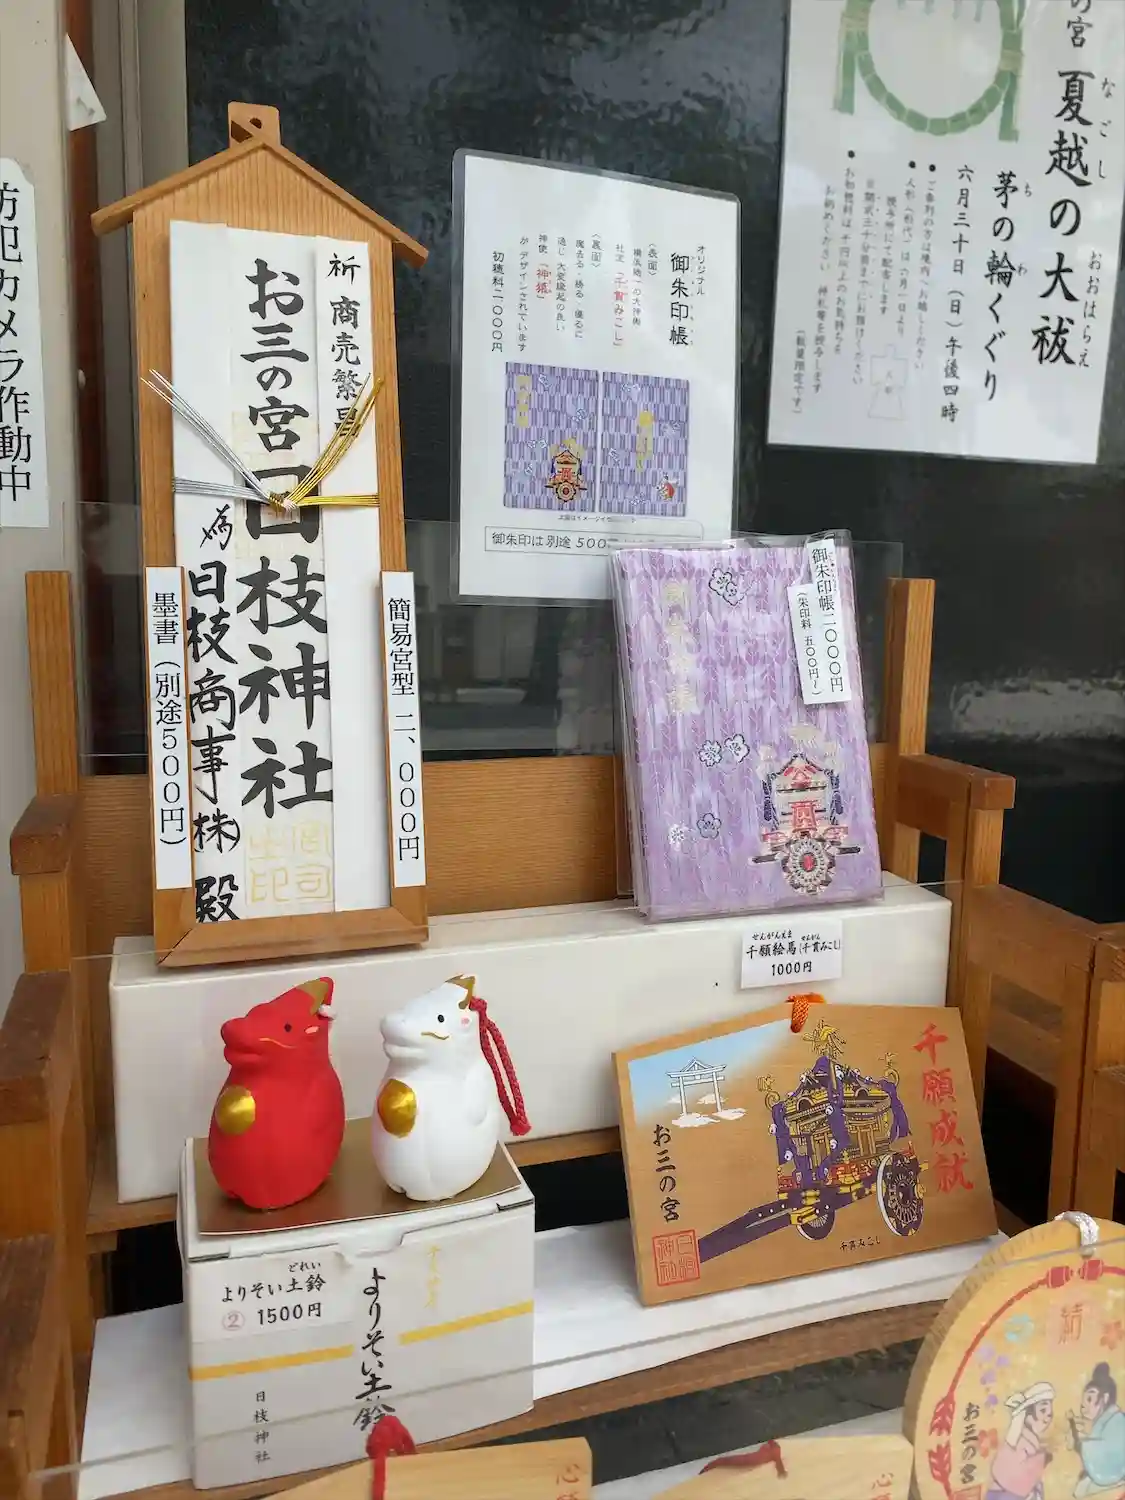 防犯カメラ作動中
祈 商売繁昌
お三の宮日枝神社
為 日枝商事㈱ 殿
簡易宮型 二、000円
墨書(別途500円)
オリジナル
御朱印帳
(表面)
横浜随一の大神輿
社宝「千貫みこし」
(裏面)
魔去る・勝る・優るに
通じ 大変縁起の良い
神使「神猿」
がデザインされています
初穂料二000円
御朱印は別途500
御朱印帳二000円
(朱印料 五00円~)
の宮 夏越の大祓
なごし
おおはらえ
茅の輪くぐり
ち
わ
六月三十日(日)午後四時
●ご参列の方は境内へお越しください
●人形(形代)は六月一日より
授与所にて配布します
お納めください
(数量限定です)
せんがんえま
千願絵馬(千貫みこし)
せんがん
1000円
千願成就
お三の宮
千貫みこし
日枝神社
どれい
よりそい土鈴
② 1500円
よりそい土鈴
日枝神社
結
お三の宮
心願
心願